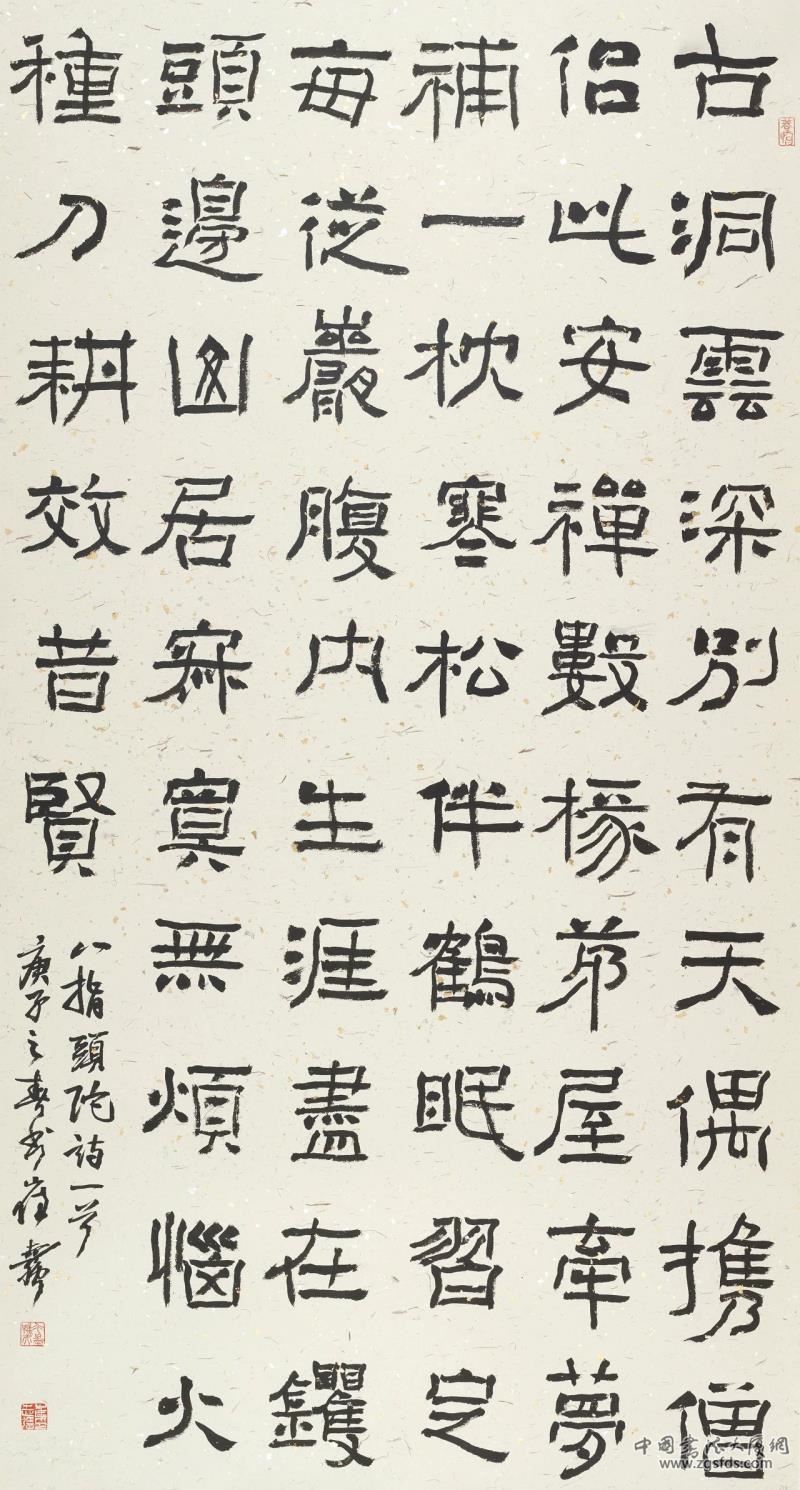 古洞雲深別有天偶攜僧
侶此安禪數椽茅屋牽夢
補一枕寒松伴鶴眠習定
每從巖腹內生涯盡在钁
頭邊山居寂寞無煩惱火
種刀耕效昔賢
八指頭陀詩一首
庚子之春書
中國書法大廈網
www.zgsfds.com